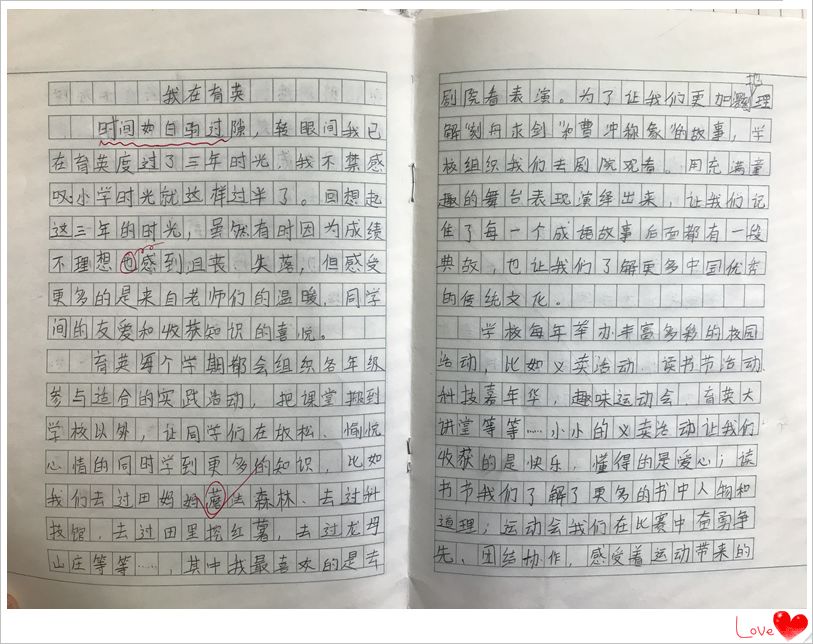 我在育英
时间如白驹过隙，转眼间我已
在育英度过了三年时光，我不禁感
叹小学时光就这样过半了。回想起
这三年的时光，虽然有时因为成绩
不理想也感到沮丧、失落，但感受
更多的是来自老师们的温暖，同学
间的友爱和收获知识的喜悦。
育英每个学期都会组织各年级
参与适合的实践活动，把课堂搬到
学校以外，让同学们在放松、愉悦
心情的同时学到更多的知识，比如
我们去过田妈妈蘑法森林、去过科
技馆，去过田里挖红薯，去过龙丹
山庄等等……，其中我最喜欢的是去
剧院看表演。为了让我们更加理
解“刻舟求剑”和“曹冲称象”的故事，学
校组织我们去剧院观看。用充满童
趣的舞台表现演绎出来，让我们记
住了每一个成语故事后面都有一段
典故，也让我们了解更多中国优秀
的传统文化。
学校每年举办丰富多彩的校园
活动，比如义卖活动、读书节活动、
科技嘉年华，趣味运动会、育英大
讲堂等等……小小的义卖活动让我们
收获的是快乐，懂得的是爱心；读
书节我们了解了更多的书中人物和
道理；运动会我们在比赛中奋勇争
先、团结协作，感受着运动带来的
Love